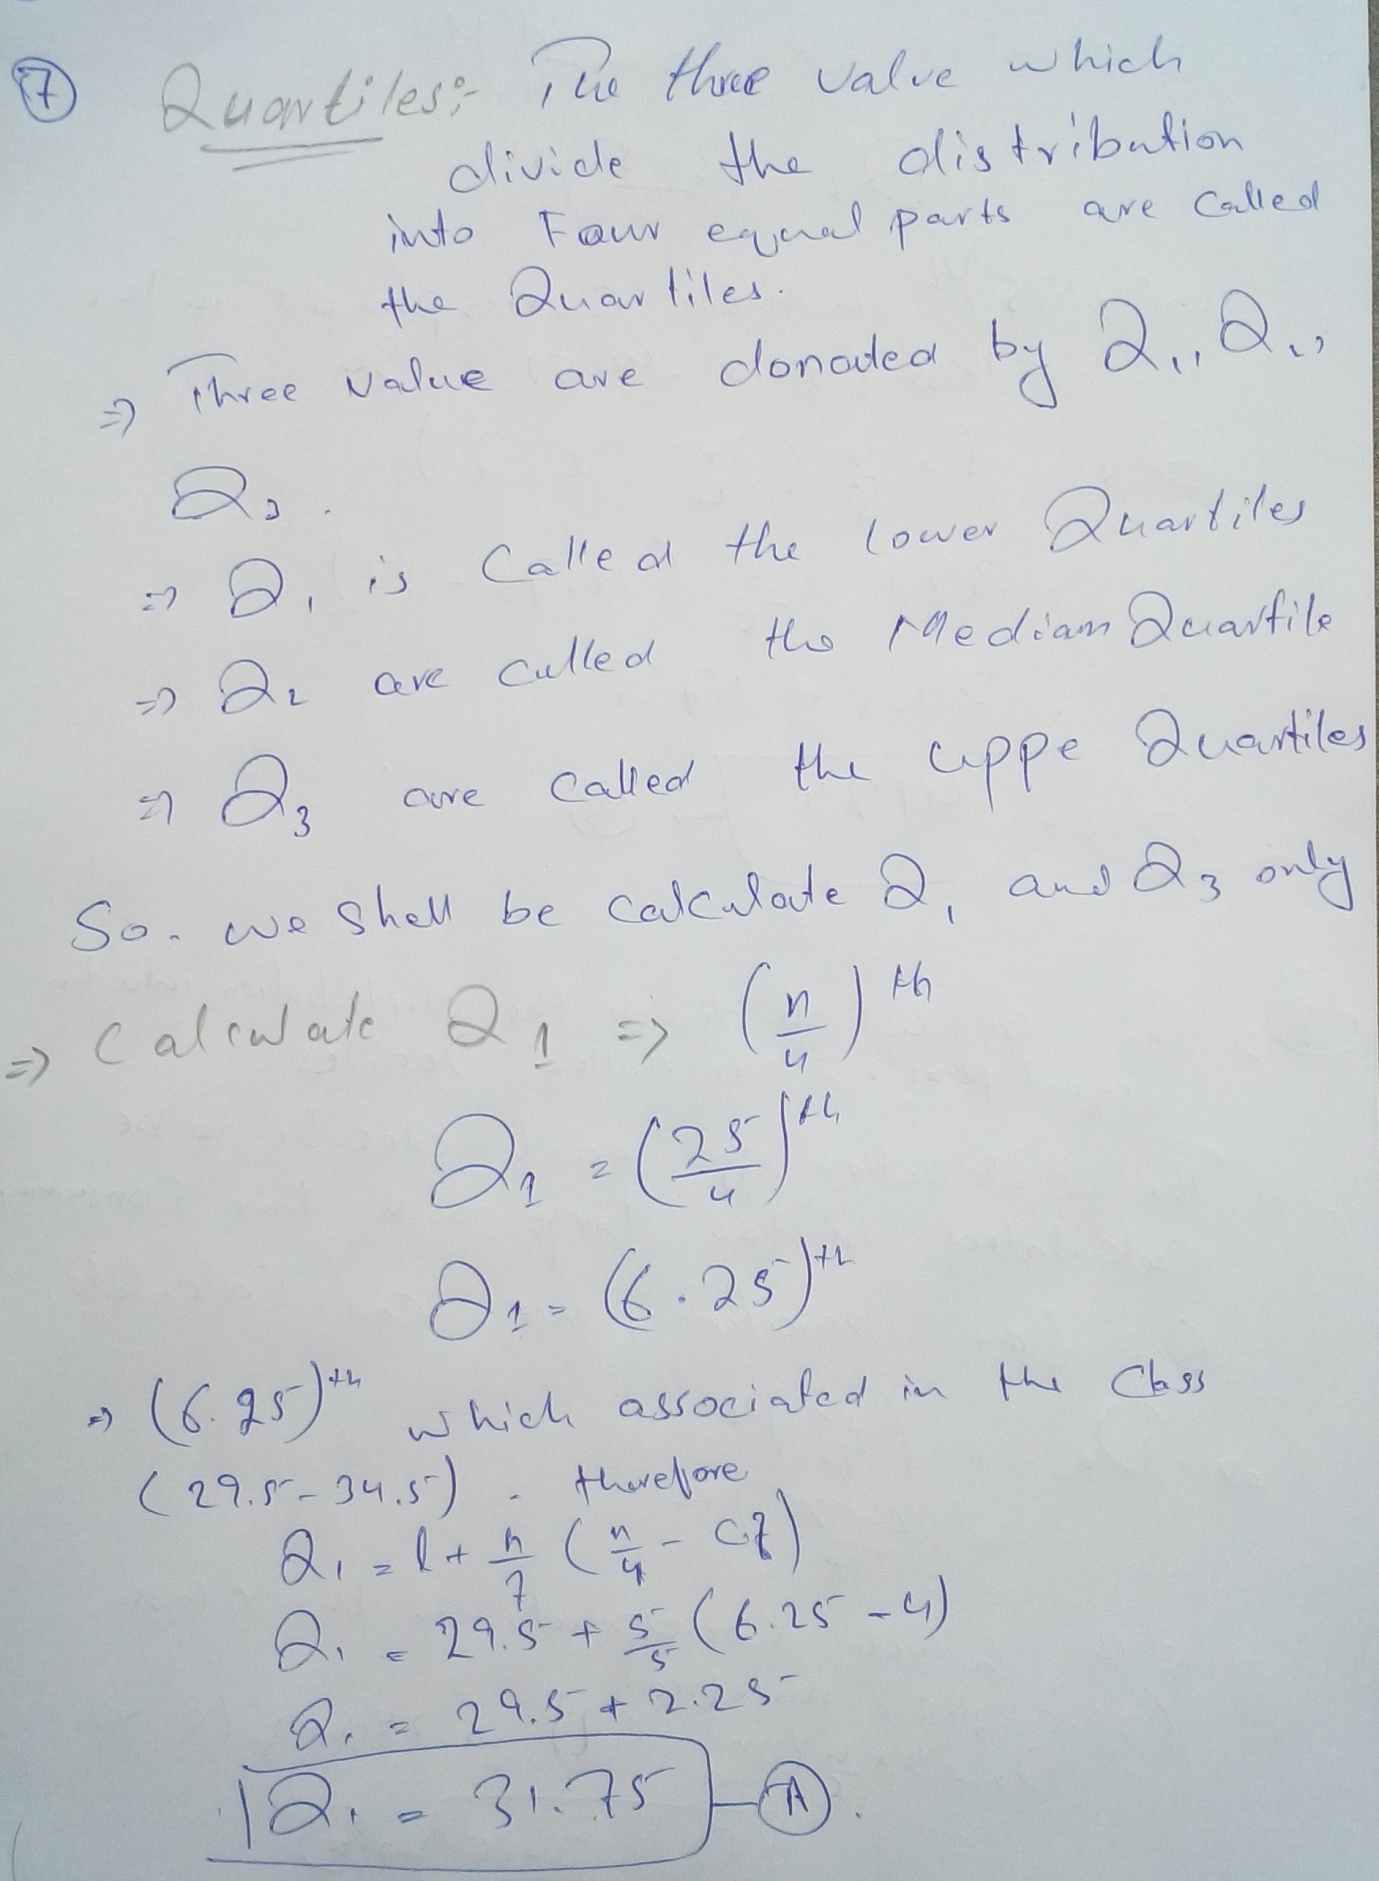 7 Quartiles:- The three value which
divide the distribution
into Four equal parts are Called
the Quartiles.
=> Three value are donated by Q1, Q2,
Q3.
=> Q1 is Called the lower Quartiles
=> Q2 are called the Median Quartile
=> Q3 are Called the uppe Quartiles
So. we shall be calculate Q1 and Q3 only
=> Calculate Q1 => (n/4)th
Q1 = (25/4)th
Q1 = (6.25)th
=> (6.25)th which associated in the Class
(29.5-34.5). therefore
Q1 = l + h/f (n/4 - C.f)
Q1 = 29.5 + 5/5 (6.25 - 4)
Q1 = 29.5 + 2.25
Q1 = 31.75 - A.